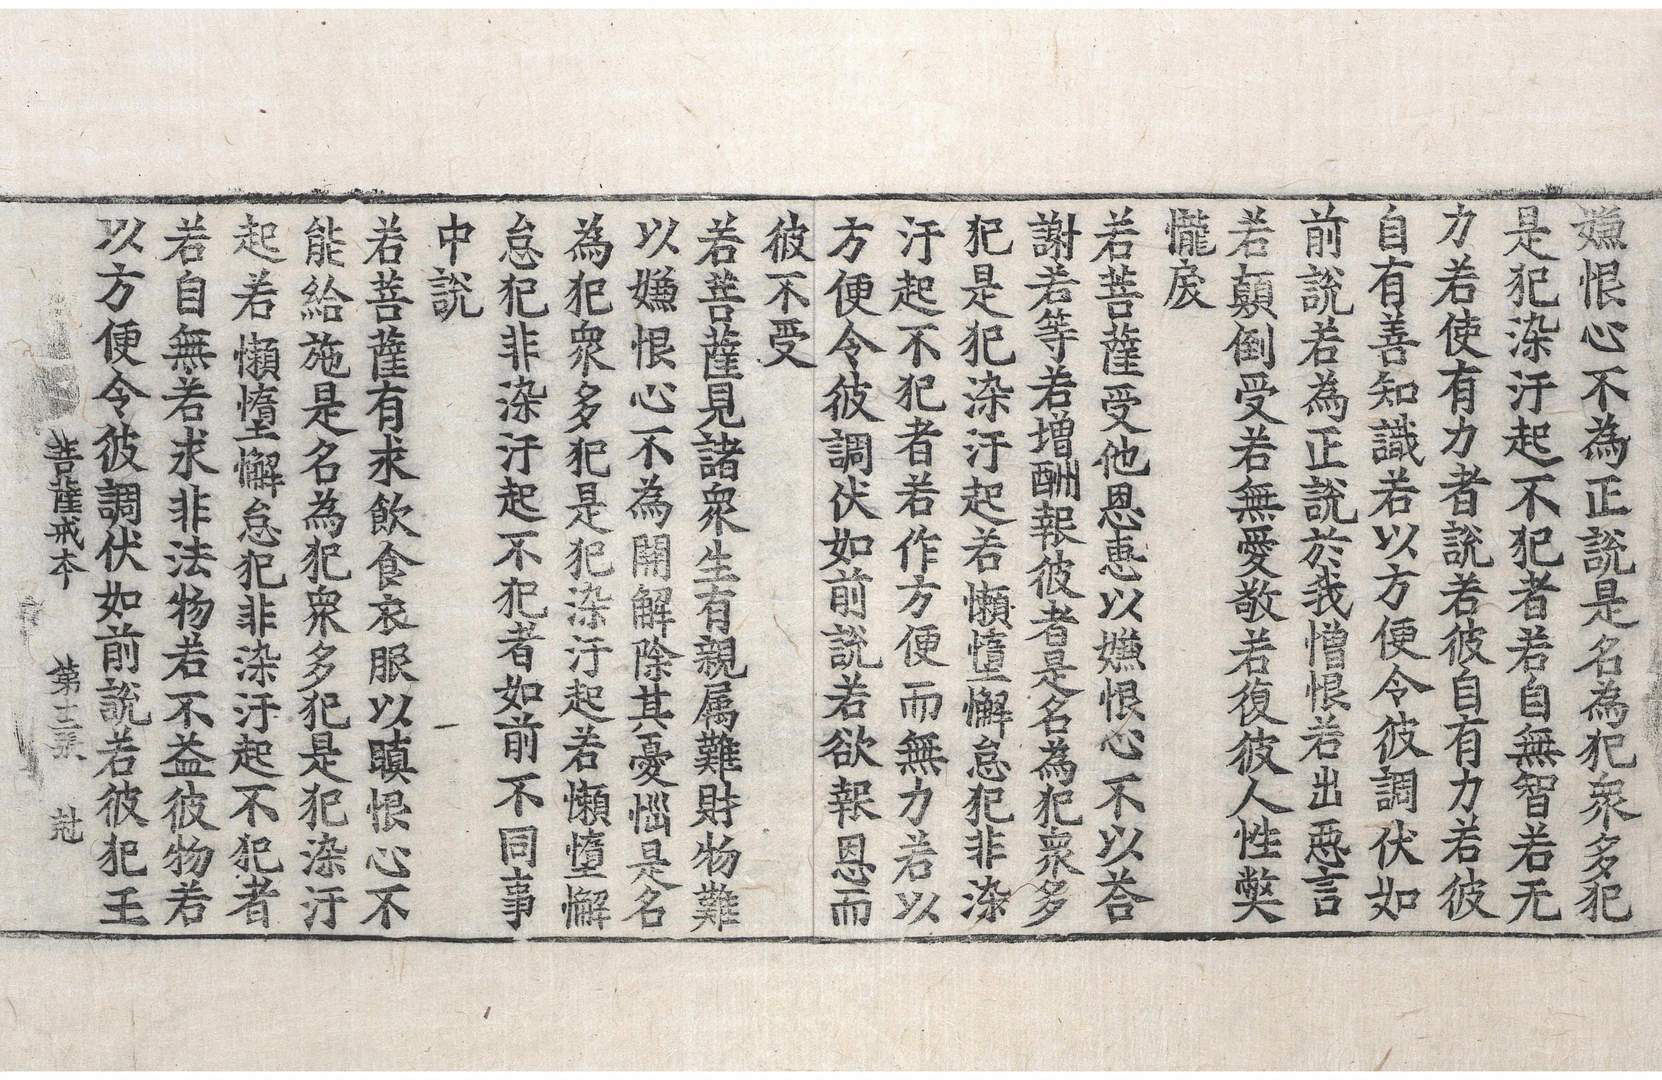 嫌恨心不為正說是名為犯衆多犯
是犯染汙起不犯者若自無智若无
力若使有力者說若彼自有力若彼
自有善知識若以方便令彼調伏如
前說若為正說於我憎恨若出惡言
若顛倒受若無愛敬若復彼人性弊
𢤱戾
若菩薩受他恩惠以嫌恨心不以荅
謝若等若增酬報彼者是名為犯衆多
犯是犯染汙起若懶墮懈怠犯非染
汙起不犯者若作方便而無力若以
方便令彼調伏如前說若欲報恩而
彼不受
若菩薩見諸衆生有親属難財物難
以嫌恨心不為開解除其憂惱是名
為犯衆多犯是犯染汙起若懶墮懈
怠犯非染汙起不犯者如前不同事
中說
若菩薩有求飲食衣服以瞋恨心不
能給施是名為犯衆多犯是犯染汙
起若懶墮懈怠犯非染汙起不犯者
若自無若求非法物若不益彼物若
以方便令彼調伏如前說若彼犯王
菩薩戒本 第十二張 尅